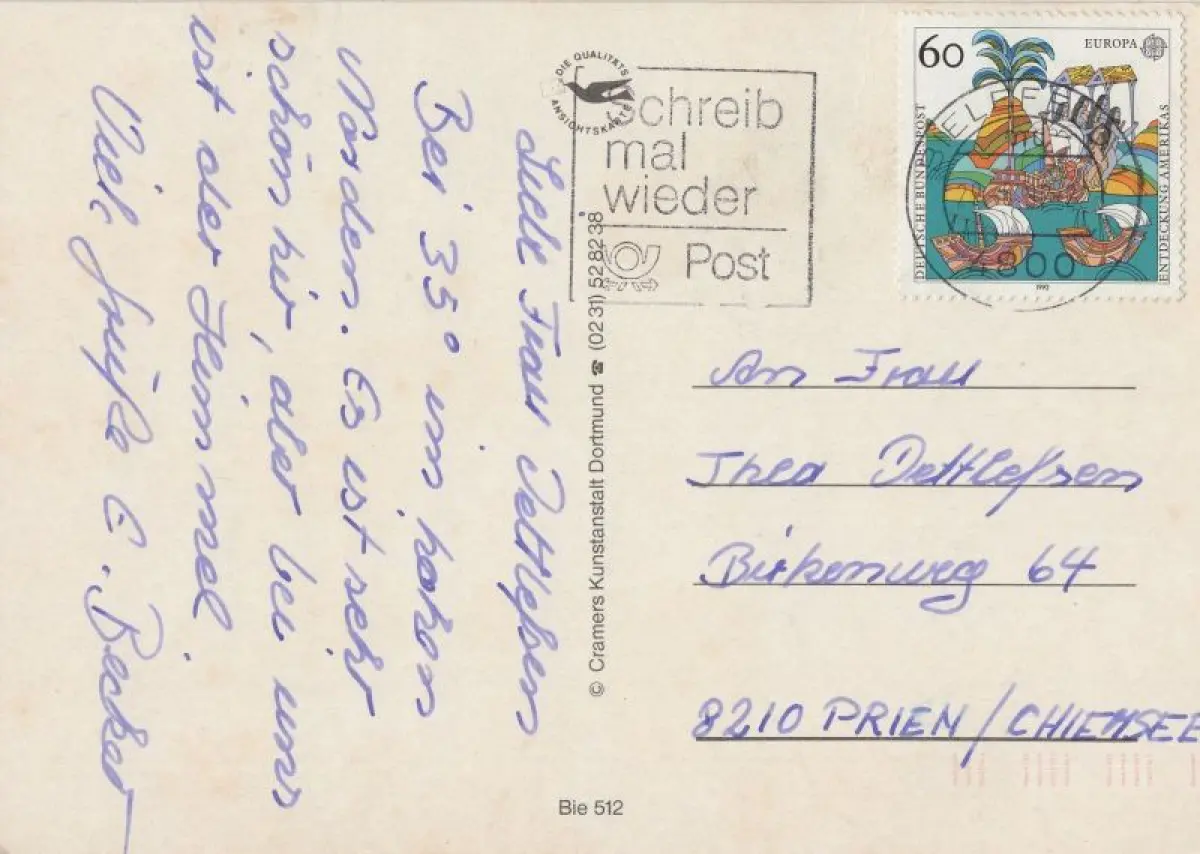 Liebe Frau Dettlefsen
Bei 35° im hohen
Norden. Es ist sehr
schön hir, aber bei uns
ist der Himmel
Viele Grüße E. Becker
DIE QUALITÄTS
ANSICHTSKARTE
Schreib
mal
wieder
Post
60
EUROPA
DEUTSCHE BUNDESPOST
ENTDECKUNG AMERIKAS
1992
4800
BIELEFELD
© Cramers Kunstanstalt Dortmund ☎ (0231) 528238
An Frau
Thea Dettlefsen
Birkenweg 64
8210 PRIEN / CHIEMSEE
Bie 512